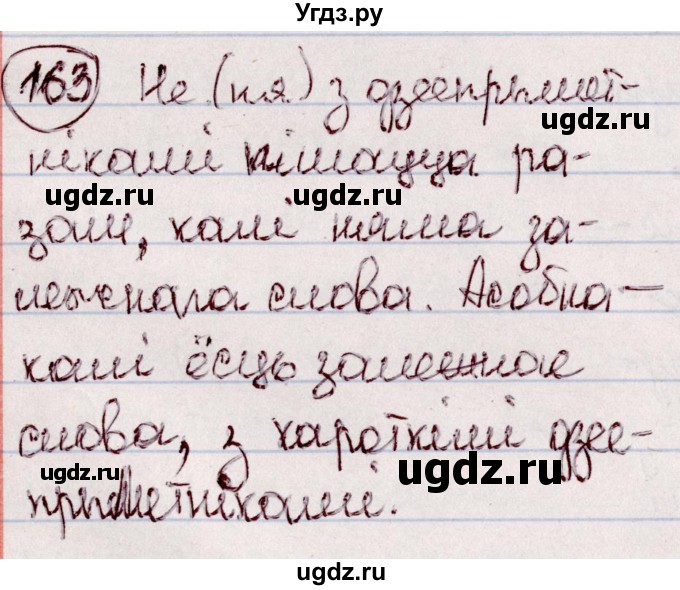 Угдз.ру
163 Не (ня) з дзеепрымет-
нікамі пішацца ра-
зам, калі няма за-
лежнага слова. Асобна —
калі ёсць залежнае
слова, з кароткімі дзее-
прыметнікамі.
ugdz.ru
ugdz.ru
ugdz.ru
ugdz.ru
ugdz.ru
ugdz.ru
ugdz.ru